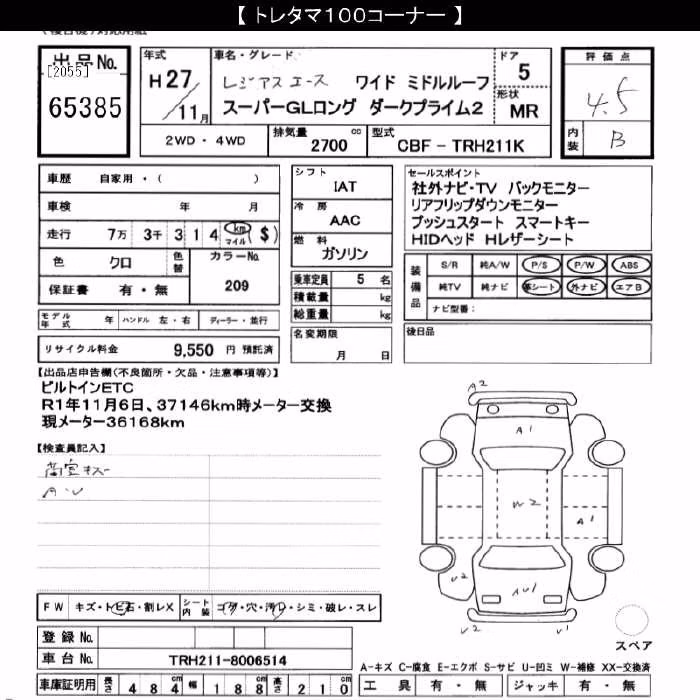 【トレタマ100コーナー】
出品No.
[2055]
65385
年式
H27
11月
車名・グレード
レジアスエース ワイド ミドルルーフ
スーパーGLロング ダークプライム2
ドア
5
形状
MR
評価点
4.5
内装
B
2WD・4WD
排気量 2700 cc
型式 CBF-TRH211K
車歴 自家用・( )
車検 年 月
走行 7万 3千 3 1 4 km マイル $)
色 クロ
色替
カラーNo.
209
保証書 有・無
モデル年式 年 ハンドル 左・右 ディーラー・並行
リサイクル料金 9,550 円 預託済
シフト
IAT
冷房
AAC
燃料
ガソリン
乗車定員 5 名
積載量 kg
総重量 kg
名変期限
月 日
セールスポイント
社外ナビ・TV バックモニター
リアフリップダウンモニター
プッシュスタート スマートキー
HIDヘッド Hレザーシート
装備品
S/R 純A/W P/S P/W ABS
純TV 純ナビ 革シート 外ナビ エアB
ナビ型番:
後日品
【出品店申告欄(不良箇所・欠品・注意事項等)】
ビルトインETC
R1年11月6日、37146km時メーター交換
現メーター36168km
【検査員記入】
A・U
A2
A1
W2
A1
U2
AU1
U2
U1
スペア
FW キズ・トビ石・割レX
シート内装 コゲ・穴・汚レ・シミ・破レ・スレ
登録No.
車台No. TRH211-8006514
車庫証明用 長さ 484cm 幅 188cm 高さ 210cm
A-キズ C-腐食 E-エクボ S-サビ U-凹ミ W-補修 XX-交換済
工具 有・無 ジャッキ 有・無